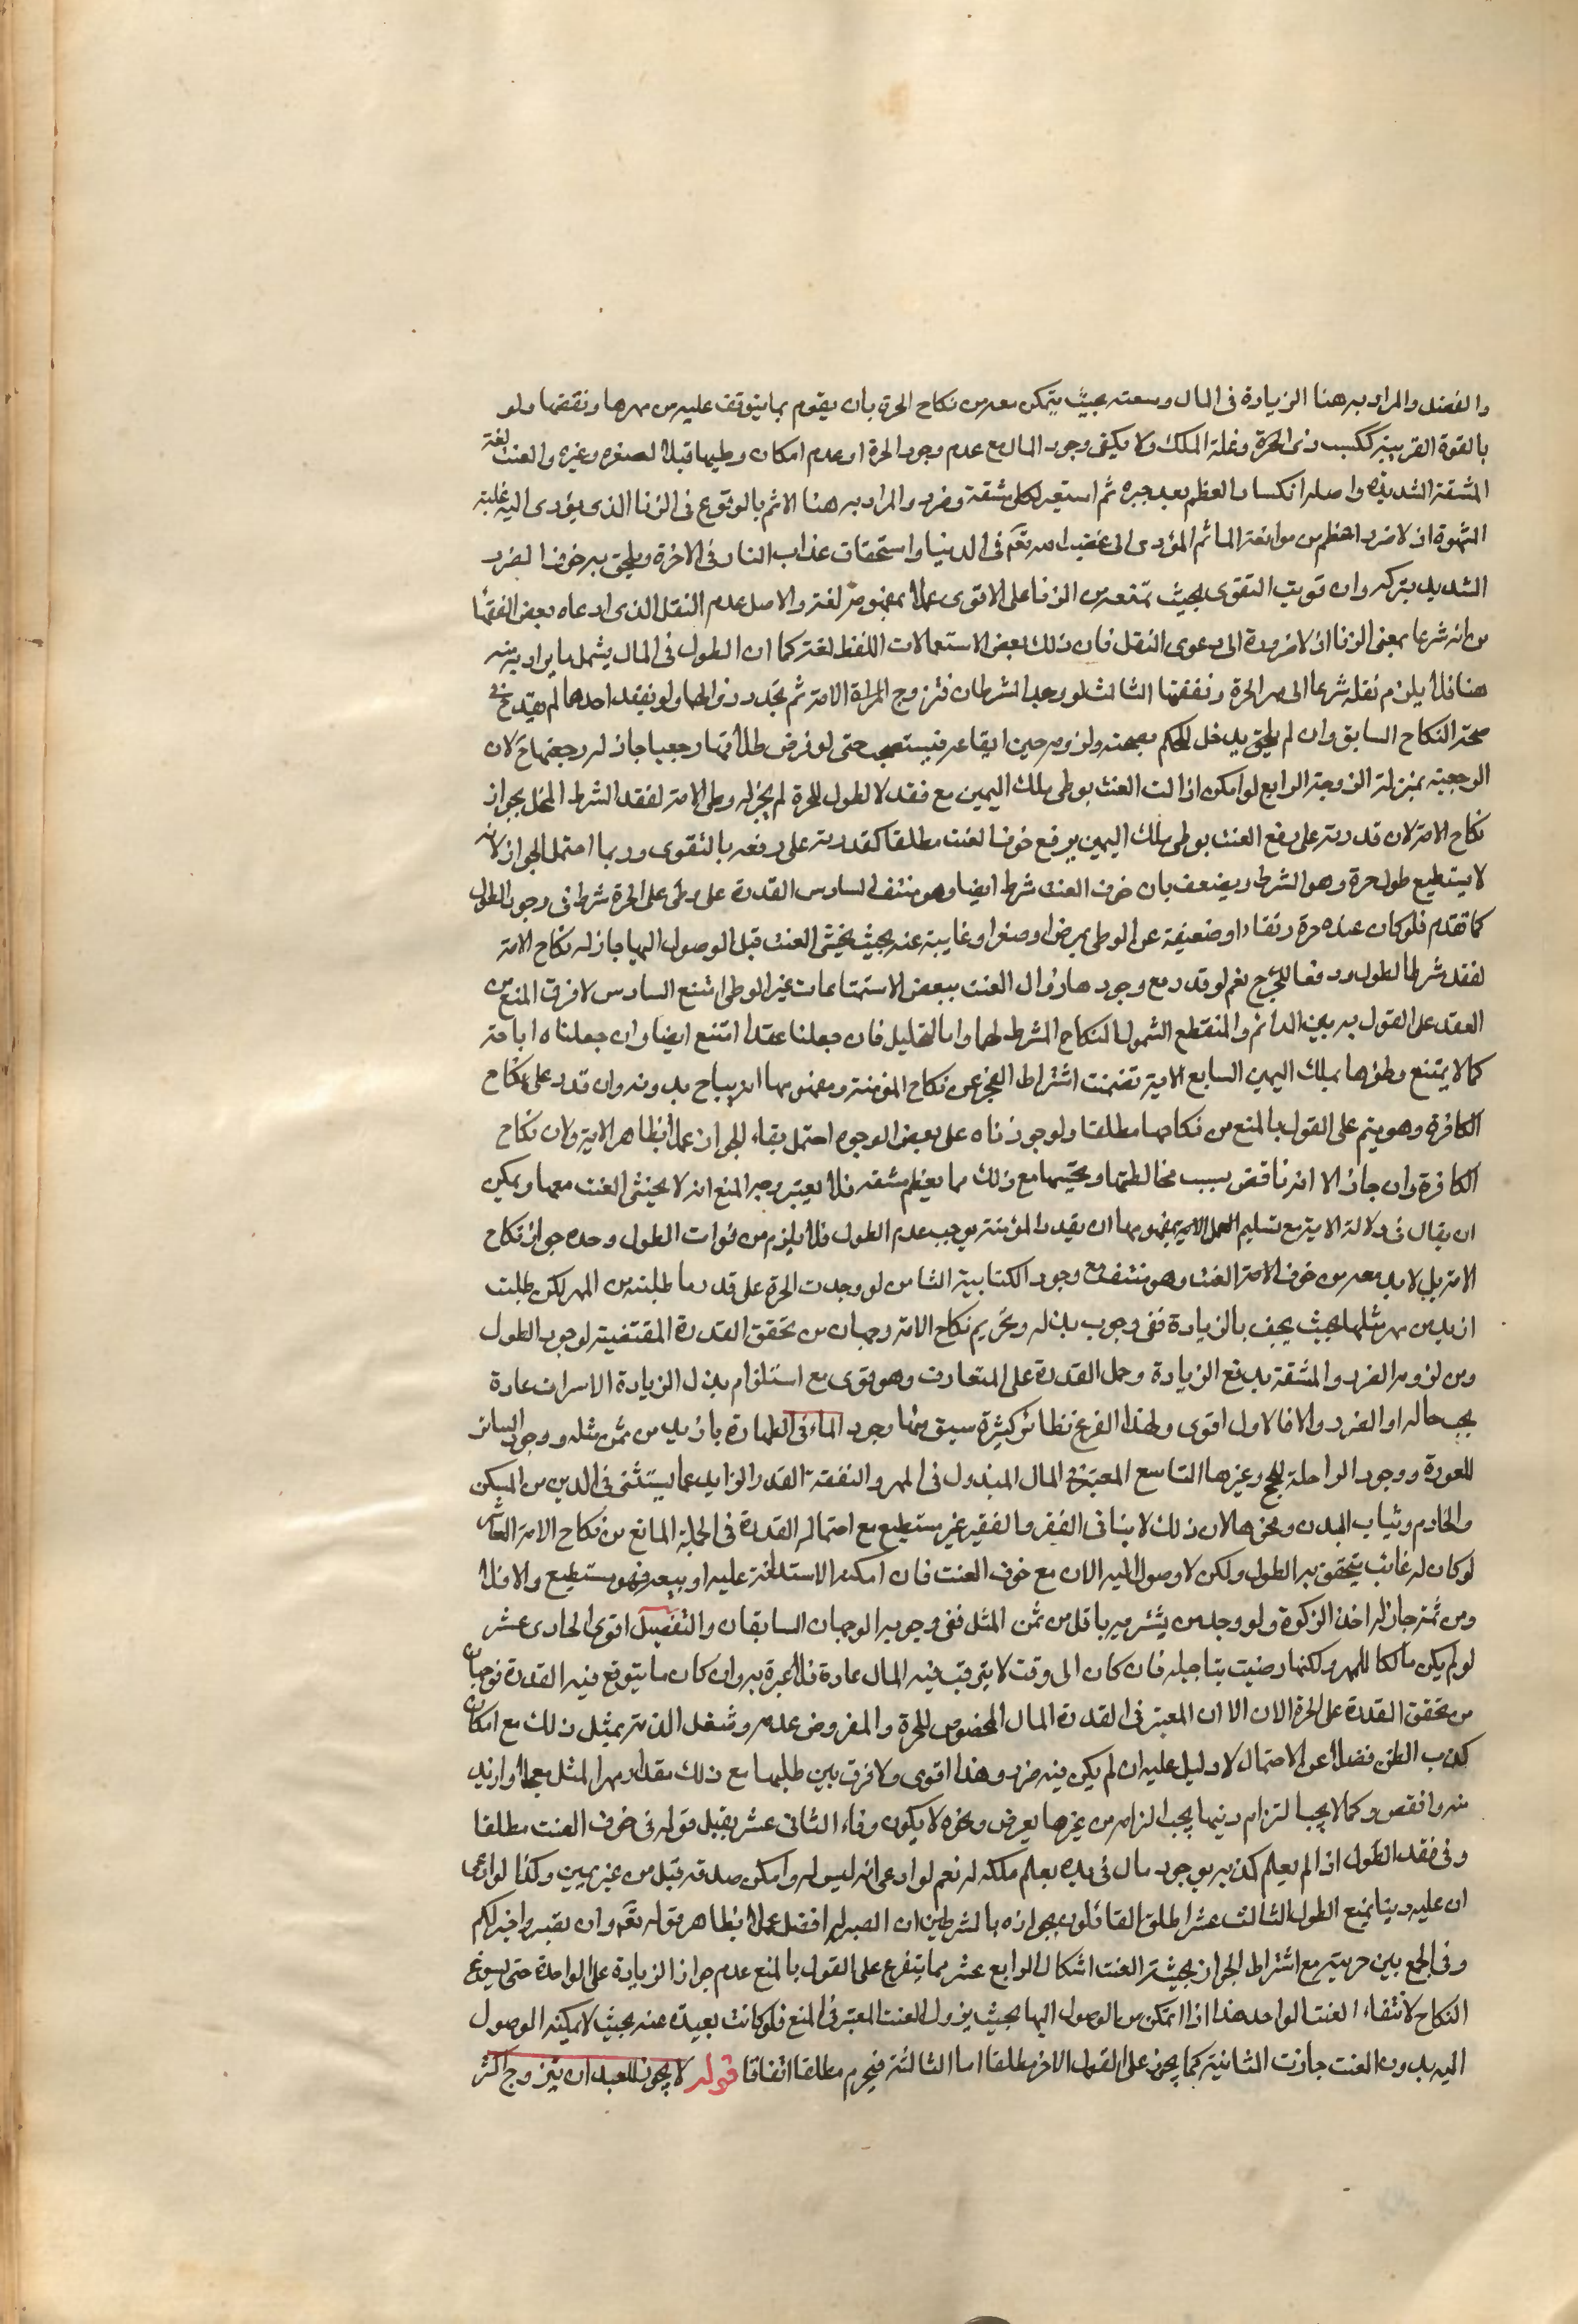 والفضل والمراد به هنا الزيادة فى المال وسعته بحيث يتمكن معه من نكاح الحرة بان يقوم بما يتوقف عليه من مهرها ونفقتها ولو
بالقوة القريبة ككسب ذى الحرفة وغلة الملك ولا يكفى وجود المال مع عدم وجود الحرة او عدم امكان وطيها قبلا لصغر وغيره والعنت لغة
المشقة الشديدة واصله انكسار العظم بعد جبره ثم استعير لكل مشقة وضرر والمراد به هنا الاثم بالوقوع فى الزنا الذى يؤدى اليه غلبة
الشهوة اذ لا ضرر اعظم من مواقعة المأثم المؤدى الى غضب الله تعم فى الدنيا واستحقاق عذاب النار فى الاخرة ويلحق به خوف الضرر
الشديد بتركه وان قويت التقوى بحيث تمنعه من الزنا على الاقوى عملا بمفهومه لغة والاصل عدم النقل الذى ادعاه بعض الفقها
من انه شرعا بمعنى الزنا اذ لا ضرورة الى دعوى النقل فان ذلك بعض الاستعمالات اللفظ لغة كما ان الطول فى المال يشمل ما يراد به منه
هنا فلا يلزم نقله شرعا الى مهر الحرة ونفقتها الثالث لو وجد الشرطان فتزوج المراة الامة ثم تجدد زوالهما ولو بفقد احدهما لم يقدح فى
صحة النكاح السابق وان لم يلحق يدخل للحكم بصحته ولزومه حين ايقاعه فيستصحب حتى لو فرض طلاقها رجعيا جاز له رجعتها ح لان
الرجعية بمنزلة الزوجة الرابع لو امكن ازالت العنت بوطى ملك اليمين مع فقد لا لطول للحرة لم يجز له وطى الامة لفقد الشرط المخل بجواز
نكاح الامة لان قدرته على دفع العنت بوطى ملك اليمين يرفع خوف العنت مطلقا كقدرته على دفعه بالتقوى وربما احتمل الجواز لانه
لا يستطيع طول حرة وهو الشرط ويضعف بان خوف العنت شرط ايضا وهو منتف السادس القدرة على وطى على الحرة شرط فى وجود الطول
كما تقدم فلو كان عنده حرة رتقاء او ضعيفة عن الوطى بمرض او صغر او غايبة عنه بحيث يخشى العنت قبل الوصول اليها جاز له نكاح الامة
لفقد شرط الطول ودفعا للحرج نعم لو قدر مع وجودها زوال العنت ببعض الاستمتاعات غير الوطى امتنع السادس لا فرق المنع من
العقد على القول به بين الدائم والمنقطع الشمول النكاح المشرط لهما واما التحليل فان جعلناه عقدا امتنع ايضا وان جعلناه اباحة
كما لا يمتنع وطؤها بملك اليمين السابع الاية تضمنت اشتراط العجز عن نكاح المؤمنة ومفهومها انه يباح بدونه وان قدر على نكاح
الكافرة وهو يتم على القول بالمنع من نكاحها مطلقا ولو جوزناه على بعض الوجوه احتمل بقاء الجواز عملا بظاهر الاية ولان نكاح
الكافرة وان جاز الا انه ناقص بسبب مخالطتها وتجنبها مع ذلك مما يعظم مشقته فلا يعتبر وجه المنع انه لا يخشى العنت معها ويمكن
ان يقال فى دلالة الاية مع تسليم العمل بمفهومها ان بقيد المؤمنة يوجب عدم الطول فلا يلزم من فوات الطول وحده جواز نكاح
الامة بل لا بد معه من خوف العنت وهو منتف مع وجود الكتابية الثامن لو وجدت الحرة على قدر ما طلبته من المهر لكن طلبت
ازيد من مهر مثلها بحيث يجحف بالزيادة ففى وجوب بذله وتحريم نكاح الامة وجهان من تحقق القدرة المقتضية لوجود الطول
ومن لزوم الضرر والمشقة بدفع الزيادة وحمل القدرة على المتعارف وهو قوى مع استلزام بذل الزيادة الاسراف عادة
بحب حاله او الضرر والا فالاول اقوى ولهذا الفرع نظائر كثيرة سبق منها وجود الماء فى الطهارة بازيد من ثمن مثله ووجود الساتر
للعورة ووجود الراحلة للحج وغيرها التاسع المعتبر فى المال المبذول فى المهر والنفقة القدر الزايد عما يستثنى فى الدين من المسكن
والخادم وثياب البدن ونحوها لان ذلك لا ينافى الفقر والفقير غير مستطيع مع احتماله القدرة فى الجملة المانع من نكاح الامة العاشر
لو كان له غائب يتحقق به الطول ولكن لا وصول اليه الان مع خوف العنت فان امكنه الاستدانة عليه او بيعه فهو مستطيع والا فلا
ومن ثمة جاز له اخذ الزكوة ولو وجد من يشتريه باقل من ثمن المثل ففى وجوبه الوجهان السابقان والتفصيل اقوى الحادى عشر
لو لم يكن مالكا للمهر ولكنها رضيت بتاجيله فان كان الى وقت لا يترقب فيه المال عادة فلا عبرة به وان كان ما يتوقع فيه القدرة فوجهان
من تحقق القدرة على الحرة الان الا ان المعتبر فى القدرة المال المخصوص للحرة والمفروض عدمه وشغل الذمة بمثل ذلك مع امكان
كذب الظن فضلا عن الاحتمال لا دليل عليه ان لم يكن فيه ضرر وهذا اقوى ولا فرق بين طلبها مع ذلك مقدار مهر المثل معجلا او ازيد
منه وانقص وكما لا يجب التزام دينها يجب الزامه من غيرها بعرض ونحوه لا يكون وفاء الثانى عشر يقبل قوله فى خوف العنت مطلقا
وفى فقد الطول اذا لم يعلم كذبه بوجود مال فى يده يعلم ملكه له نعم لو ادعى انه ليس له وامكن صدقه قبل من غير يمين وكذا لو ادعى
ان عليه دينا يمنع الطول الثالث عشر اطلق القائلون بجوازه بالشرطين ان الصبر له افضل عملا بظاهر قوله تعم وان تصبروا خير لكم
وفى الجمع بين حرمته مع اشتراط الجواز بخشية العنت اشكال الرابع عشر مما يتفرع على القول بالمنع عدم جواز الزيادة على الواحدة حتى يسوغ
النكاح لانتفاء العنت الواحد هذا اذا تمكن من الوصول اليها بحيث يزول العنت المعتبر فى المنع فلو كانت بعيدة عنه بحيث لا يمكنه الوصول
اليه بدون العنت جازت الثانية كما يجوز على القول الاخر مطلقا اما الثالثة فيحرم مطلقا اتفاقا قوله لا يجوز للعبد ان يتزوج اكثر